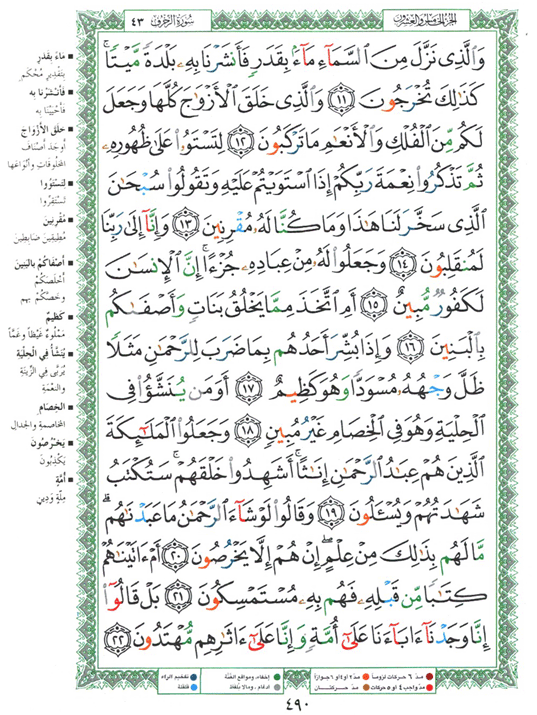 الجزء الخامس والعشرون
سورة الزخرف ٤٣
وَالَّذِي نَزَّلَ مِنَ السَّمَاءِ مَاءً بِقَدَرٍ فَأَنشَرْنَا بِهِ بَلْدَةً مَّيْتًا ۚ
كَذَٰلِكَ تُخْرَجُونَ ١١ وَالَّذِي خَلَقَ الْأَزْوَاجَ كُلَّهَا وَجَعَلَ
لَكُم مِّنَ الْفُلْكِ وَالْأَنْعَامِ مَا تَرْكَبُونَ ١٢ لِتَسْتَوُوا عَلَىٰ ظُهُورِهِ
ثُمَّ تَذْكُرُوا نِعْمَةَ رَبِّكُمْ إِذَا اسْتَوَيْتُمْ عَلَيْهِ وَتَقُولُوا سُبْحَانَ
الَّذِي سَخَّرَ لَنَا هَٰذَا وَمَا كُنَّا لَهُ مُقْرِنِينَ ١٣ وَإِنَّا إِلَىٰ رَبِّنَا
لَمُنقَلِبُونَ ١٤ وَجَعَلُوا لَهُ مِنْ عِبَادِهِ جُزْءًا ۚ إِنَّ الْإِنسَانَ
لَكَفُورٌ مُّبِينٌ ١٥ أَمِ اتَّخَذَ مِمَّا يَخْلُقُ بَنَاتٍ وَأَصْفَاكُم
بِالْبَنِينَ ١٦ وَإِذَا بُشِّرَ أَحَدُهُم بِمَا ضَرَبَ لِلرَّحْمَٰنِ مَثَلًا
ظَلَّ وَجْهُهُ مُسْوَدًّا وَهُوَ كَظِيمٌ ١٧ أَوَمَن يُنَشَّأُ فِي
الْحِلْيَةِ وَهُوَ فِي الْخِصَامِ غَيْرُ مُبِينٍ ١٨ وَجَعَلُوا الْمَلَائِكَةَ
الَّذِينَ هُمْ عِبَادُ الرَّحْمَٰنِ إِنَاثًا ۚ أَشَهِدُوا خَلْقَهُمْ ۚ سَتُكْتَبُ
شَهَادَتُهُمْ وَيُسْأَلُونَ ١٩ وَقَالُوا لَوْ شَاءَ الرَّحْمَٰنُ مَا عَبَدْنَاهُم ۗ
مَّا لَهُم بِذَٰلِكَ مِنْ عِلْمٍ ۖ إِنْ هُمْ إِلَّا يَخْرُصُونَ ٢٠ أَمْ آتَيْنَاهُمْ
كِتَابًا مِّن قَبْلِهِ فَهُم بِهِ مُسْتَمْسِكُونَ ٢١ بَلْ قَالُوا
إِنَّا وَجَدْنَا آبَاءَنَا عَلَىٰ أُمَّةٍ وَإِنَّا عَلَىٰ آثَارِهِم مُّهْتَدُونَ ٢٢
ماءً بقدر
بتقدير مُحكم
فأنشرنا به
فأحيينا به
خلق الأزواج
أوجد أصناف
المخلوقات وأنواعها
لتستووا
لتستقروا
مقرنين
مطيقين ضابطين
أصفاكم بالبنين
أخلصكم
وخصّكم بهم
كظيم
مملوء غيظاً وغمّاً
يُنَشَّأُ في الحلية
يُربّى في الزينة
والنعمة
الخصام
المخاصمة والجدال
يخرصون
يكذبون
أمّة
ملّة ودين
مدّ ٦ حركات لزوماً
مدّ ٢ أو ٤ أو ٦ جوازاً
إخفاء، ومواقع الغُنَّة
تفخيم الراء
مدّ واجب ٤ أو ٥ حركات
مدّ حركتان
إدغام، وما لا يُلفظ
قلقلة
٤٩٠